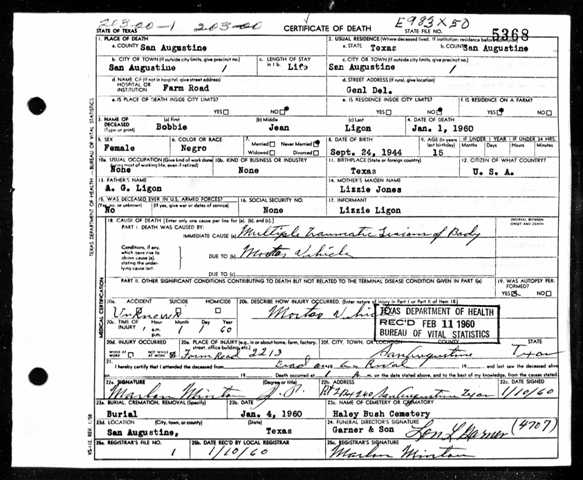 203-00-1 203-00 CERTIFICATE OF DEATH E983X50
STATE OF TEXAS STATE FILE NO. 5368
1. PLACE OF DEATH 2. USUAL RESIDENCE (Where deceased lived. If institution: residence before
a. COUNTY San Augustine a. STATE Texas b. COUNTY San Augustine
b. CITY OR TOWN (If outside city limits, give precinct no.) c. LENGTH OF STAY c. CITY OR TOWN (If outside city limits, give precinct no.)
San Augustine 1 in 1 b. Life San Augustine 1
d. NAME OF (If not in hospital, give street address) d. STREET ADDRESS (If rural, give location)
HOSPITAL OR INSTITUTION Farm Road Genl Del.
e. IS PLACE OF DEATH INSIDE CITY LIMITS? e. IS RESIDENCE INSIDE CITY LIMITS? f. IS RESIDENCE ON A FARM?
YES NO YES NO YES NO
3. NAME OF DECEASED (a) First (b) Middle (c) Last 4. DATE OF DEATH
(Type or print) Bobbie Jean Ligon Jan. 1, 1960
5. SEX 6. COLOR OR RACE 7. Married Never Married 8. DATE OF BIRTH 9. AGE (In years last birthday) IF UNDER 1 YEAR IF UNDER 24 HRS.
Female Negro Widowed Divorced Sept. 24, 1944 15 Months Days Hours Minutes
10a. USUAL OCCUPATION (Give kind of work done 10b. KIND OF BUSINESS OR INDUSTRY 11. BIRTHPLACE (State or foreign country) 12. CITIZEN OF WHAT COUNTRY?
None None Texas U. S. A.
13. FATHER'S NAME 14. MOTHER'S MAIDEN NAME
A. G. Ligon Lizzie Jones
15. WAS DECEASED EVER IN U.S. ARMED FORCES? 16. SOCIAL SECURITY NO. 17. INFORMANT
(Yes, no or unknown) (If yes, give war or dates of service)
No None Lizzie Ligon
18. CAUSE OF DEATH [Enter only one cause per line for (a), (b), and (c).] INTERVAL BETWEEN ONSET AND DEATH
PART I. DEATH WAS CAUSED BY:
IMMEDIATE CAUSE (a) Multiple Traumatic Lesions of Body
Conditions, if any, which gave rise to above cause (a), stating the underlying cause last.
DUE TO (b) Motor Vehicle
DUE TO (c)
PART II. OTHER SIGNIFICANT CONDITIONS CONTRIBUTING TO DEATH BUT NOT RELATED TO THE TERMINAL DISEASE CONDITION GIVEN IN PART I(a) 19. WAS AUTOPSY PERFORMED?
YES NO
20a. ACCIDENT SUICIDE HOMICIDE 20b. DESCRIBE HOW INJURY OCCURRED. (Enter nature of injury in Part I or Part II of item 18.)
Unknown Motor Vehicle
TEXAS DEPARTMENT OF HEALTH
REC'D FEB 11 1960
BUREAU OF VITAL STATISTICS
20c. TIME OF INJURY Hour Month Day Year
1 1 1 60
20d. INJURY OCCURRED 20e. PLACE OF INJURY (e.g., in or about home, farm, factory, street, office building, etc.) 20f. CITY, TOWN, COUNTY STATE
Farm Road 2213 San Augustine Texas
21. I hereby certify that I attended the deceased from
Death occurred at m. on the date stated above, and to the best of my knowledge, from the causes stated.
22a. SIGNATURE 22b. ADDRESS 22c. DATE SIGNED
Marlon Minton J.P. San Augustine Texas 1/10/60
23a. BURIAL, CREMATION, REMOVAL (Specify) 23b. DATE 23c. NAME OF CEMETERY OR CREMATORY
Burial Jan. 4, 1960 Haley Bush Cemetery
23d. LOCATION (City, town, or county) (State) 24. FUNERAL DIRECTOR'S SIGNATURE
San Augustine, Texas Garner & Son Lon L Garner (4707)
25a. REGISTRAR'S FILE NO. 25b. DATE REC'D BY LOCAL REGISTRAR 25c. REGISTRAR'S SIGNATURE
1 1/10/60 Marlon Minton
TEXAS DEPARTMENT OF HEALTH — BUREAU OF VITAL STATISTICS
MEDICAL CERTIFICATION
VS-112 REV. 1/58